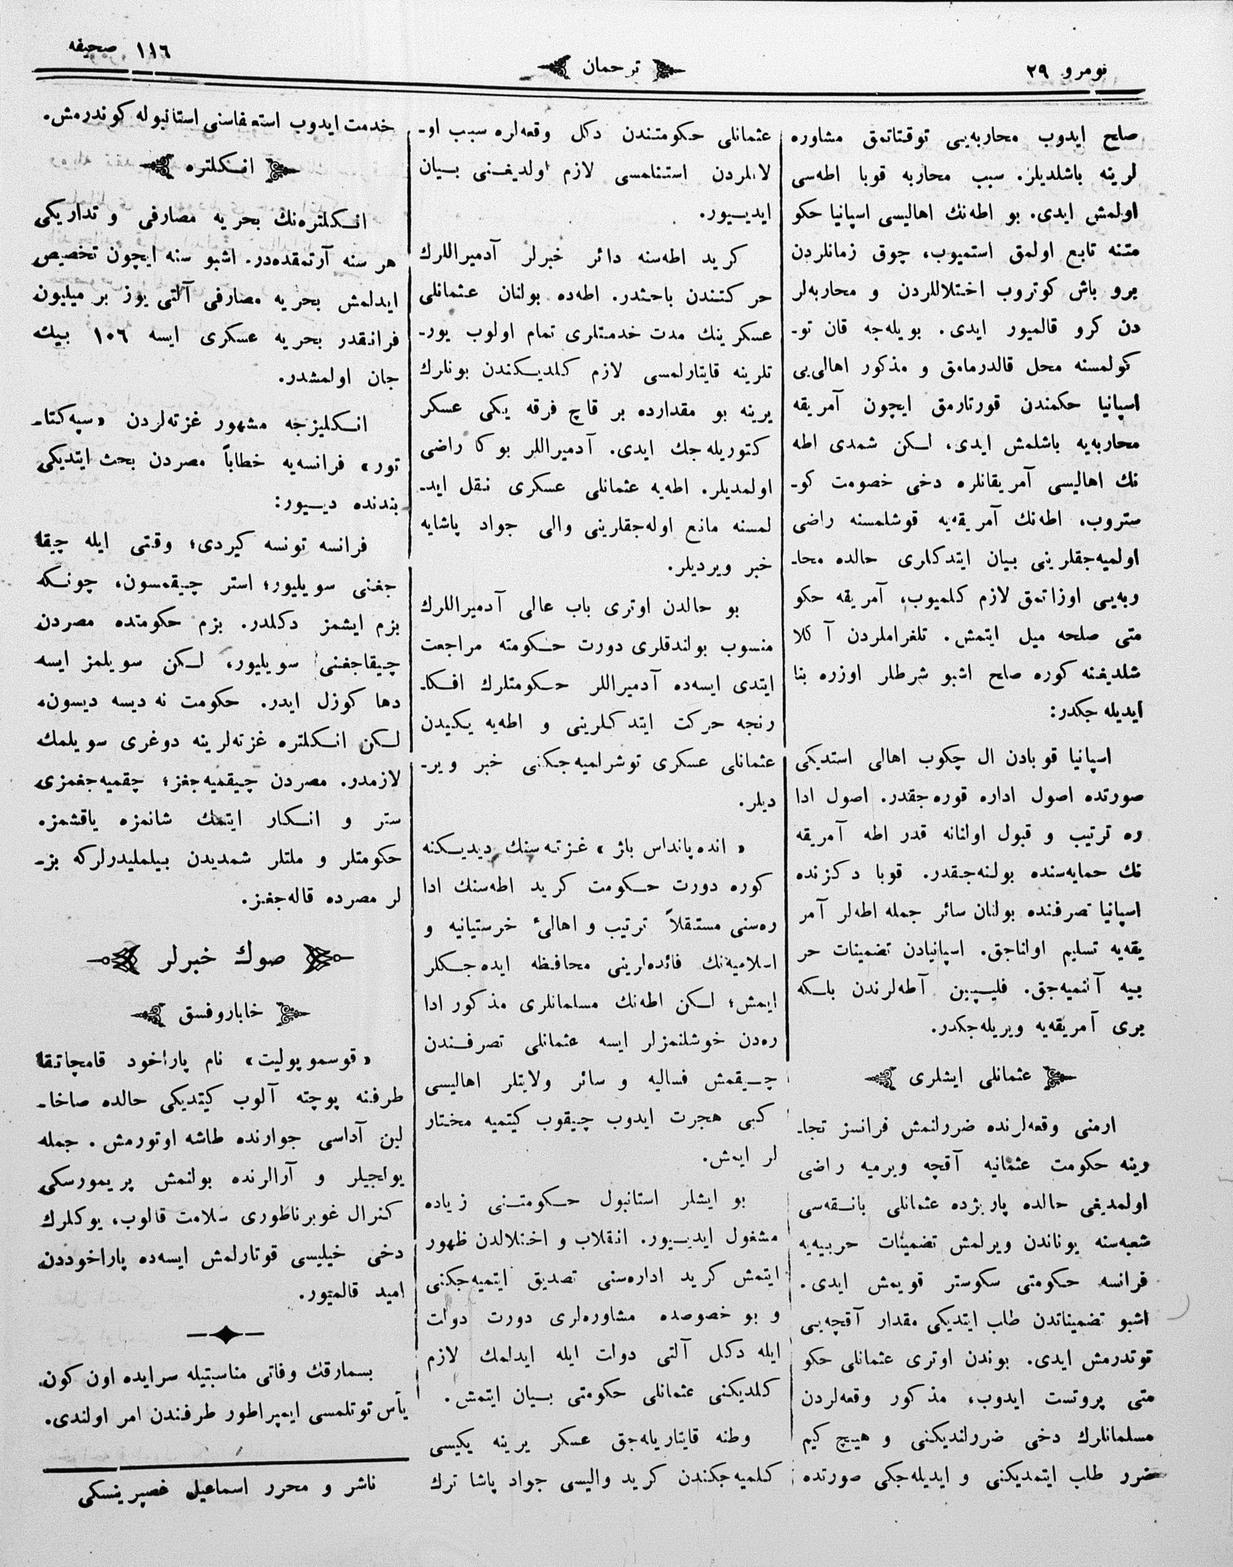 نومرو ٢٩
ترجمان
١١٦ صحیفه
صلح ایدوب محاربه‌یی توقتاتمق مشاوره
لرینه باشلدیلر. سبب محاربه قوبا اطه‌سی
اولمش ایدی. بو اطه‌نك اهالیسی اسپانیا حکو
متنه تابع اولمق استمیوب، چوق زمانلردن
برو باش کوتروب اختلاللردن و محاربه‌لر
دن کرو قالمیور ایدی. بویله‌جه قان تو-
کولمسنه محل قالدرمامق و مذکور اهالی‌یی
اسپانیا حکمندن قورتارمق ایچون آمریقه
محاربه‌یه باشلمش ایدی، لـکن شمدی اطه
نك اهالیسی آمریقانلره دخی خصومت کو-
ستروب، اطه‌نك آمریقه‌یه قوشلمسنه راضی
اولمیه‌جقلرینی بیان ایتدکلری حالده محا-
ربه‌یی اوزاتمق لازم کلمیوب، آمریقه حکو
متی صلحه میل ایتمش. تلغراملردن آ کلا
شلدیغنه کوره صلح اشبو شرطلر اوزره بنا
ایدیله جکدر:
اسپانیا قوبادن ال چکوب اهالی استدیکی
صورتده اصول اداره قوره‌جقدر. اصول ادا
ره ترتیب و قبول اولنانه قدر اطه آمریقه
نك حمایه‌سنده بولنه‌جقدر. قوبا دکزنده
اسپانیا تصرفنده بولنان سائر جمله اطه‌لر آمر
یقه‌یه تسلیم اولناجق. اسپانیادن تضمینات حر
بیه آلنمیه‌جق. فلیپین آطه‌لرندن بلـکه
بری آمریقه‌یه ویریله‌جکدر.
عثمانلی ایشلری
ارمنی وقعه‌لرنده ضررلنمش فرانسز تجا-
رینه حکومت عثمانیه آقچه ویرمیه راضی
اولمدیغی حالده پاریژده عثمانلی بانـقه‌سی
شعبه‌سنه یوناندن ویرلمش تضمینات حربیه‌یه
فرانسه حـکومتی سکوستر قویمش ایدی.
اشبو تضمیناتدن طلب ایتدیکی مقدار آقچه‌یی
توتدرمش ایدی. بوندن اوتری عثمانلی حکو
متی پروتست ایدوب، مذکور وقعه‌لردن
مسلمانلرك دخی ضررلندیکنی و هیچ کیم
ضرر طلب ایتمدیکنی و ایدیله‌جکی صورتده
عثمانلی حکومتندن دکل وقعه‌لره سبب او-
لانلردن استنلمسی لازم اولدیغـنی بـیان
ایدیـیور.
کرید اطه‌سنه دائر خبرلر آدمیراللرك
حرکتندن باحثدر. اطه‌ده بولنان عثمانلی
عسکرینك مدت خدمتلری تمام اولوب یور-
تلرینه قایتارلمسی لازم کلدیـکندن بونلرك
یرینه بو مقدارده بر قاچ فرقه یکی عسکر
کتوریله‌جك ایدی. آدمیراللر بوکا راضی
اولمدیلر. اطه‌یه عثمانلی عسکری نقل اید-
لمسنه مانع اوله‌جقلرینی والی جواد پاشایه
خبر ویردیلر.
بو حالدن اوتری باب عالی آدمیراللرك
منسوب بولندقلری دورت حـکومته مراجعت
ایتدی ایسه‌ده آدمیراللر حـکومتلرك افـکا-
رنجه حرکت ایتدکلرینی و اطه‌یه یکیدن
عثمانلی عسکری توشرلمیه‌جکنی خبر ویر-
دیلر.
« انده‌پانداس باژ » غـزته‌سنك دیدیـکنه
کوره دورت حـکومت کرید اطه‌سنك ادا
ره‌سنی مستقلاً ترتیب و اهالئ خرستیانیه و
اسلامیه‌نك فائده‌لرینی محافظه ایده‌جـکلر
ایمش؛ لـکن اطه‌نك مسلمانلری مذکور ادا
ره‌دن خوشلنمزلر ایسه عثمانلی تصرفـندن
چـیقمش فسالیه و سائر ولایتلر اهالیسی
کبی هجرت ایدوب چیقوب کیتمیه مختار
لر ایمش.
بو ایشلر استانبول حـکومتـنی زیاده
مشغول ایدیـیور. انقلاب و اختلالدن ظهور
ایتمش کرید اداره‌سنی تصدیق ایتمیه‌جکنی
و بو خصوصده مشاوره‌لری دورت دولت
ایله دکل آلتی دولت ایله ایدلمك لازم
کلدیکنی عثمانلی حکومتی بـیان ایتمش.
وطنه قایتاریله‌جق عسکر یرینه یکیسی
کلمیه‌جکندن کرید والیسی جواد پاشا ترك
خدمت ایدوب استعفاسنی استانبوله کوندرمش.
انـکلتره
انـکلتره‌نك بحریه مصارفی و تدارکی
هر سنه آرتمقده‌در. اشبو سنه ایچون تخصیص
ایدلمش بحریه مصارفی آلتی یوز بر میلیون
فرانقدر بحریه عسکری ایسه ١٠٦ بیك
جان اولمشدر.
انـکلیزجه مشهور غزته‌لردن «سپه‌کتا-
تور» فرانسه‌یه خطاباً مصردن بحث ایتدیکی
بندنده دیـیور:
فرانسه تونسه کیردی؛ وقتی ایله چیقا
جغنی سویلیور؛ استر چـیقمسون، چونـکه
بزم ایشمز دکلدر. بزم حکومتده مصردن
چیقاجغـنی سویلیور، لـکن سویلمز ایسه
دها کوزل ایدر. حکومت نه دیسه دیسون،
لـکن انـکلتره غزته‌لرینه دوغری سویلمك
لازمدر. مصردن چیقمیه‌جغز؛ چقمیه‌جغمزی
ستر و انـکار ایتمك شانمزه یاقشمز.
حکومتلر و ملتلر شمدیدن بیلملیدرلرکه بز-
لر مصرده قاله‌جغز.
صوك خبرلر
خاباروفسق
«قوسموپولیت» نام پاراخود قامچاتقا
طرفنه پوچته آلوب کیتدیکی حالده صاخا-
لین آداسی جوارنده طاشه اوتورمش. جمله
یولجیلر و آرالرنده بولنمش پریمورسکی
کنرال غوبرناطوری سلامت قالوب، یوکلرك
دخی خیلیسی قوتارلمش ایسه‌ده پاراخوددن
امید قالمیور.
بسمارقك وفاتی مناسبتیله سرایده اون کون
یأس توتلمسی ایمپراطور طرفندن امر اولندی.
ناشر و محرر اسماعیل غصپرینسکی